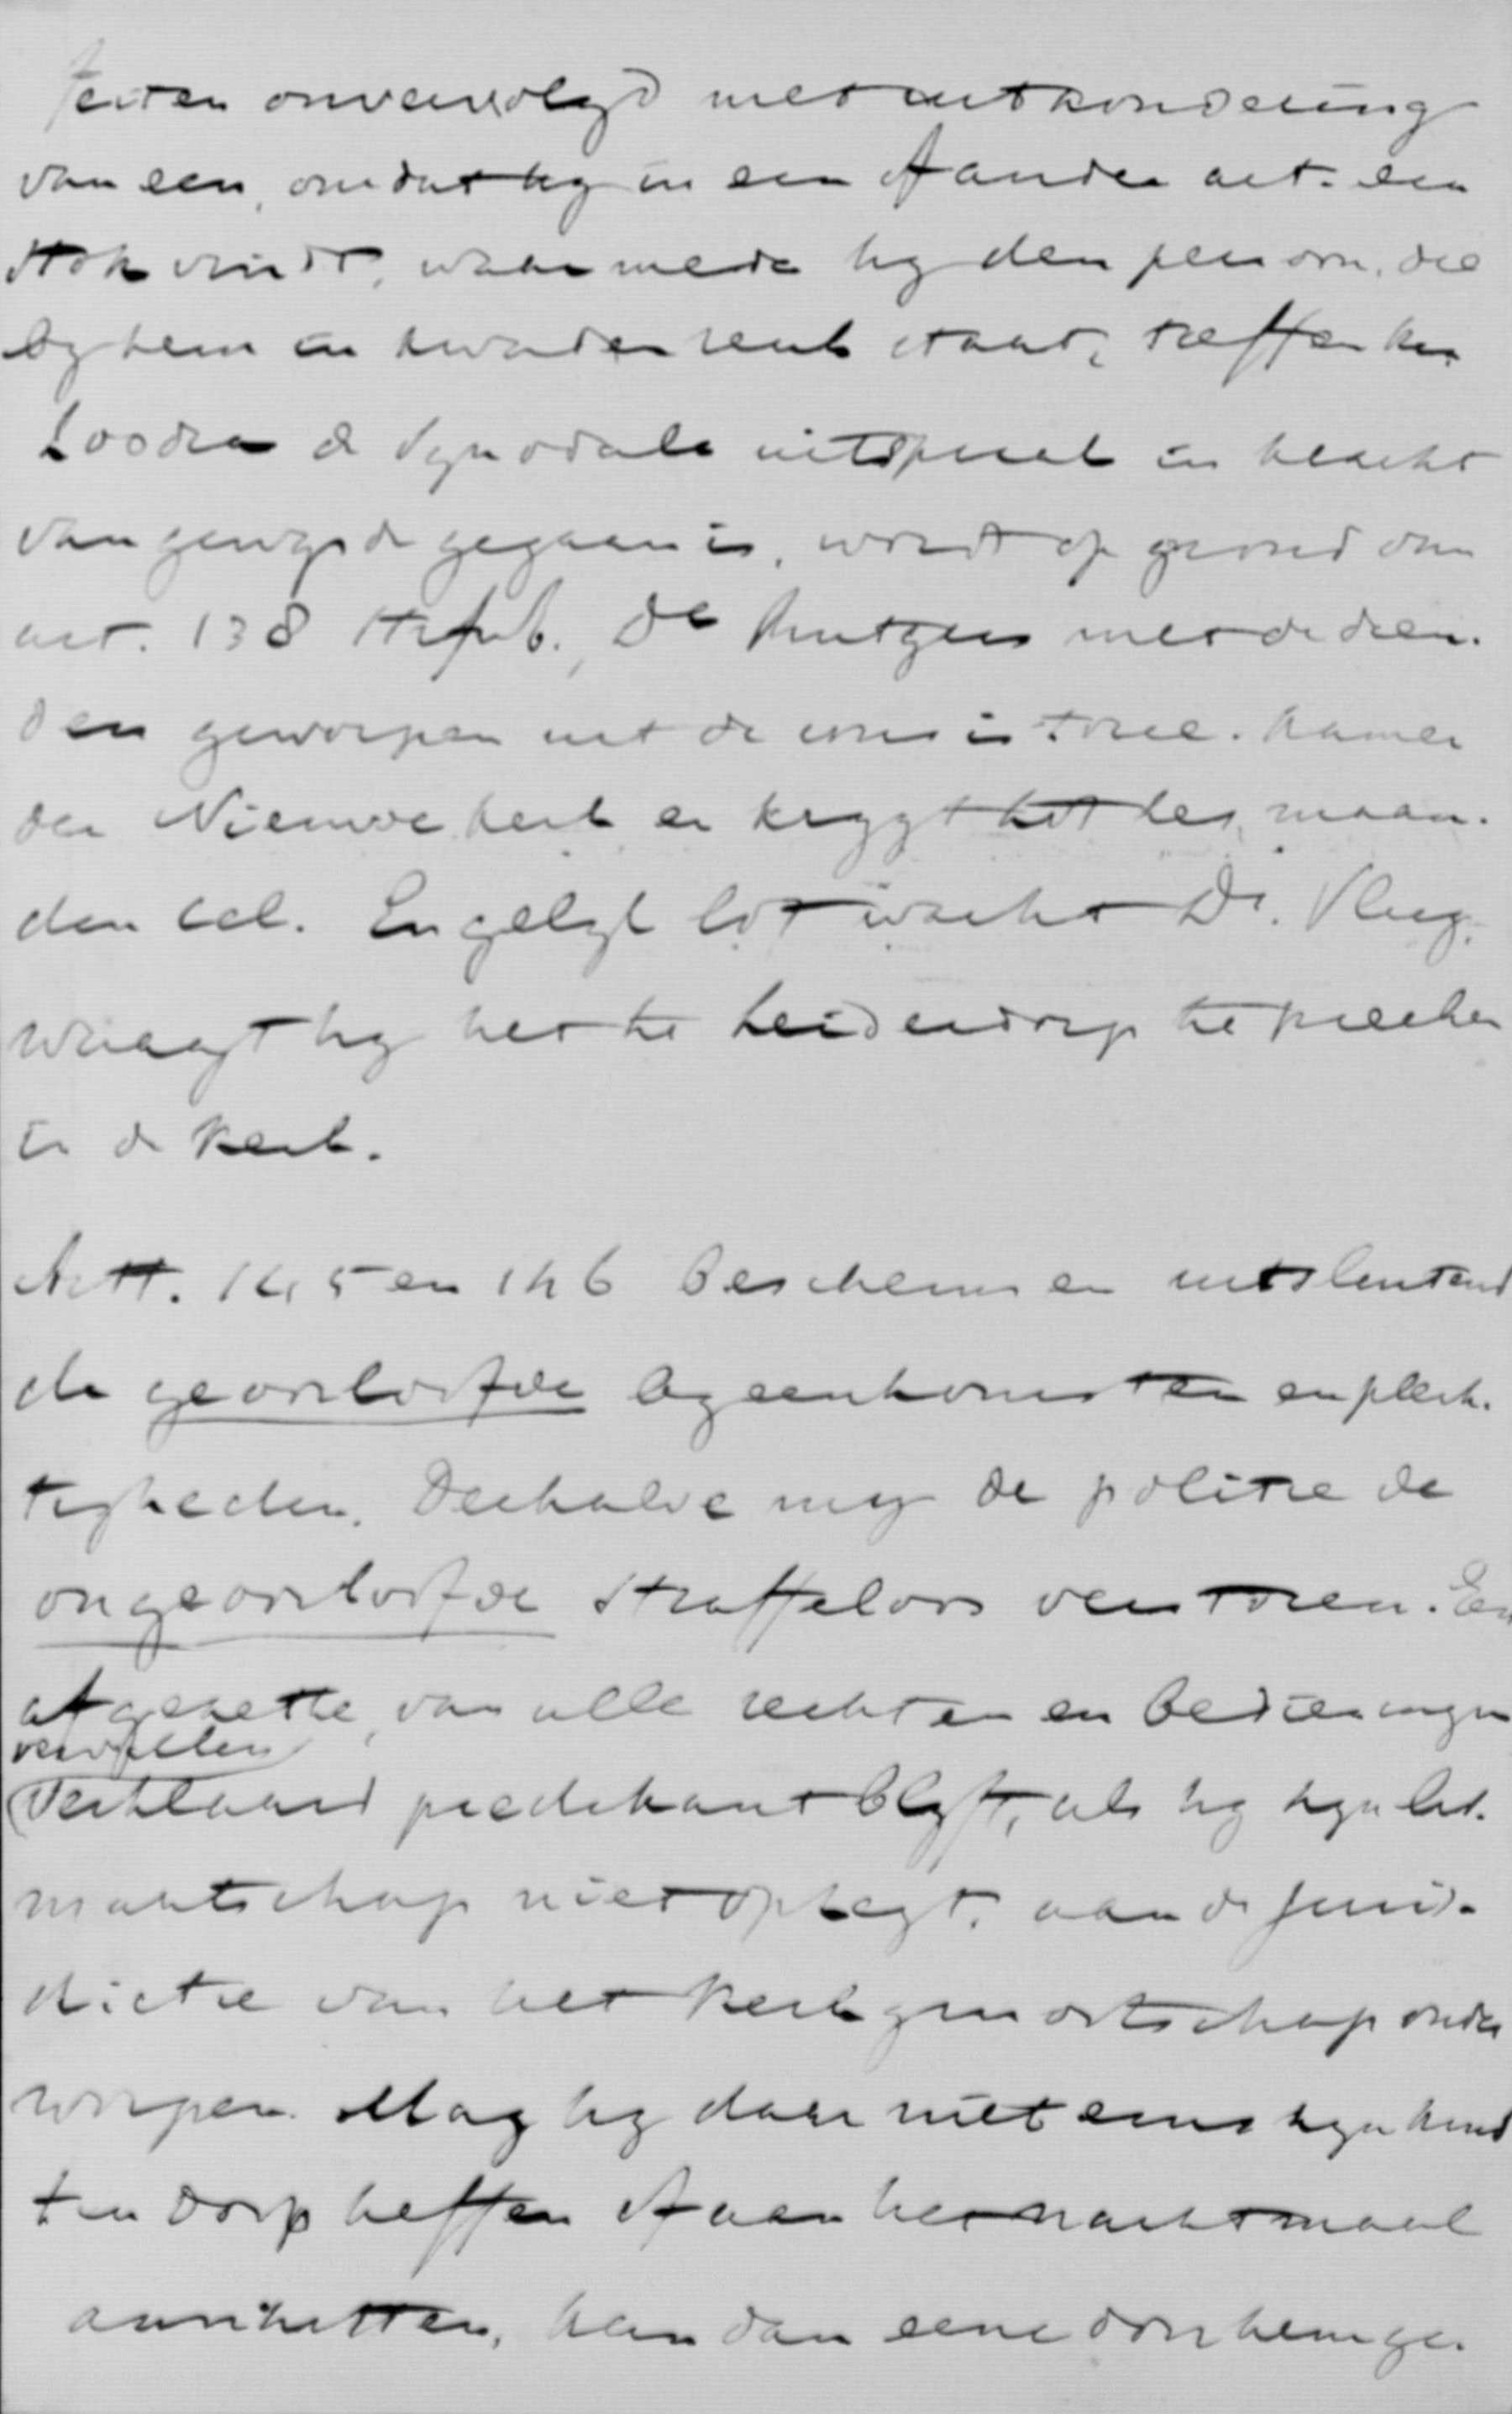 feiten onvervolgd met uitzondering
van een, omdat hij in een of ander art. een
stok vindt, waarmede hij den persoon, die
bij hem in kwaden reuk staat, treffen kan.
Zoodra de Synodale uitspraak in kracht
van gewijsde gegaan is, wordt op grond van
art. 138 Strfwb., Ds Rutgers met de dien.
den geworpen uit de consistorie-kamer
der Nieuwe kerk en krijgt het zes maan.
den cel. Eengelijk lot wacht Dr. Vlug,
waagt hij het te Leiderdorp te preeken
in de kerk.
Artt. 145 en 146 beschermen uitsluitend
de geoorloofde bijeenkomsten en plech.
tigheden. Derhalve mag de politie de
ongeoorloofde straffeloos verstoren. Een
afgezette, van alle rechten en bedieningen
vervallen
verklaard predikant blijft, als hij zijn lid.
maatschap niet opzegt, aan de juris.
dictie van het kerkgenootschap onder
worpen. Mag hij daar niet eens zijn kind
ten doop heffen of aan het nachtmaal
aanzitten, kan dan eene